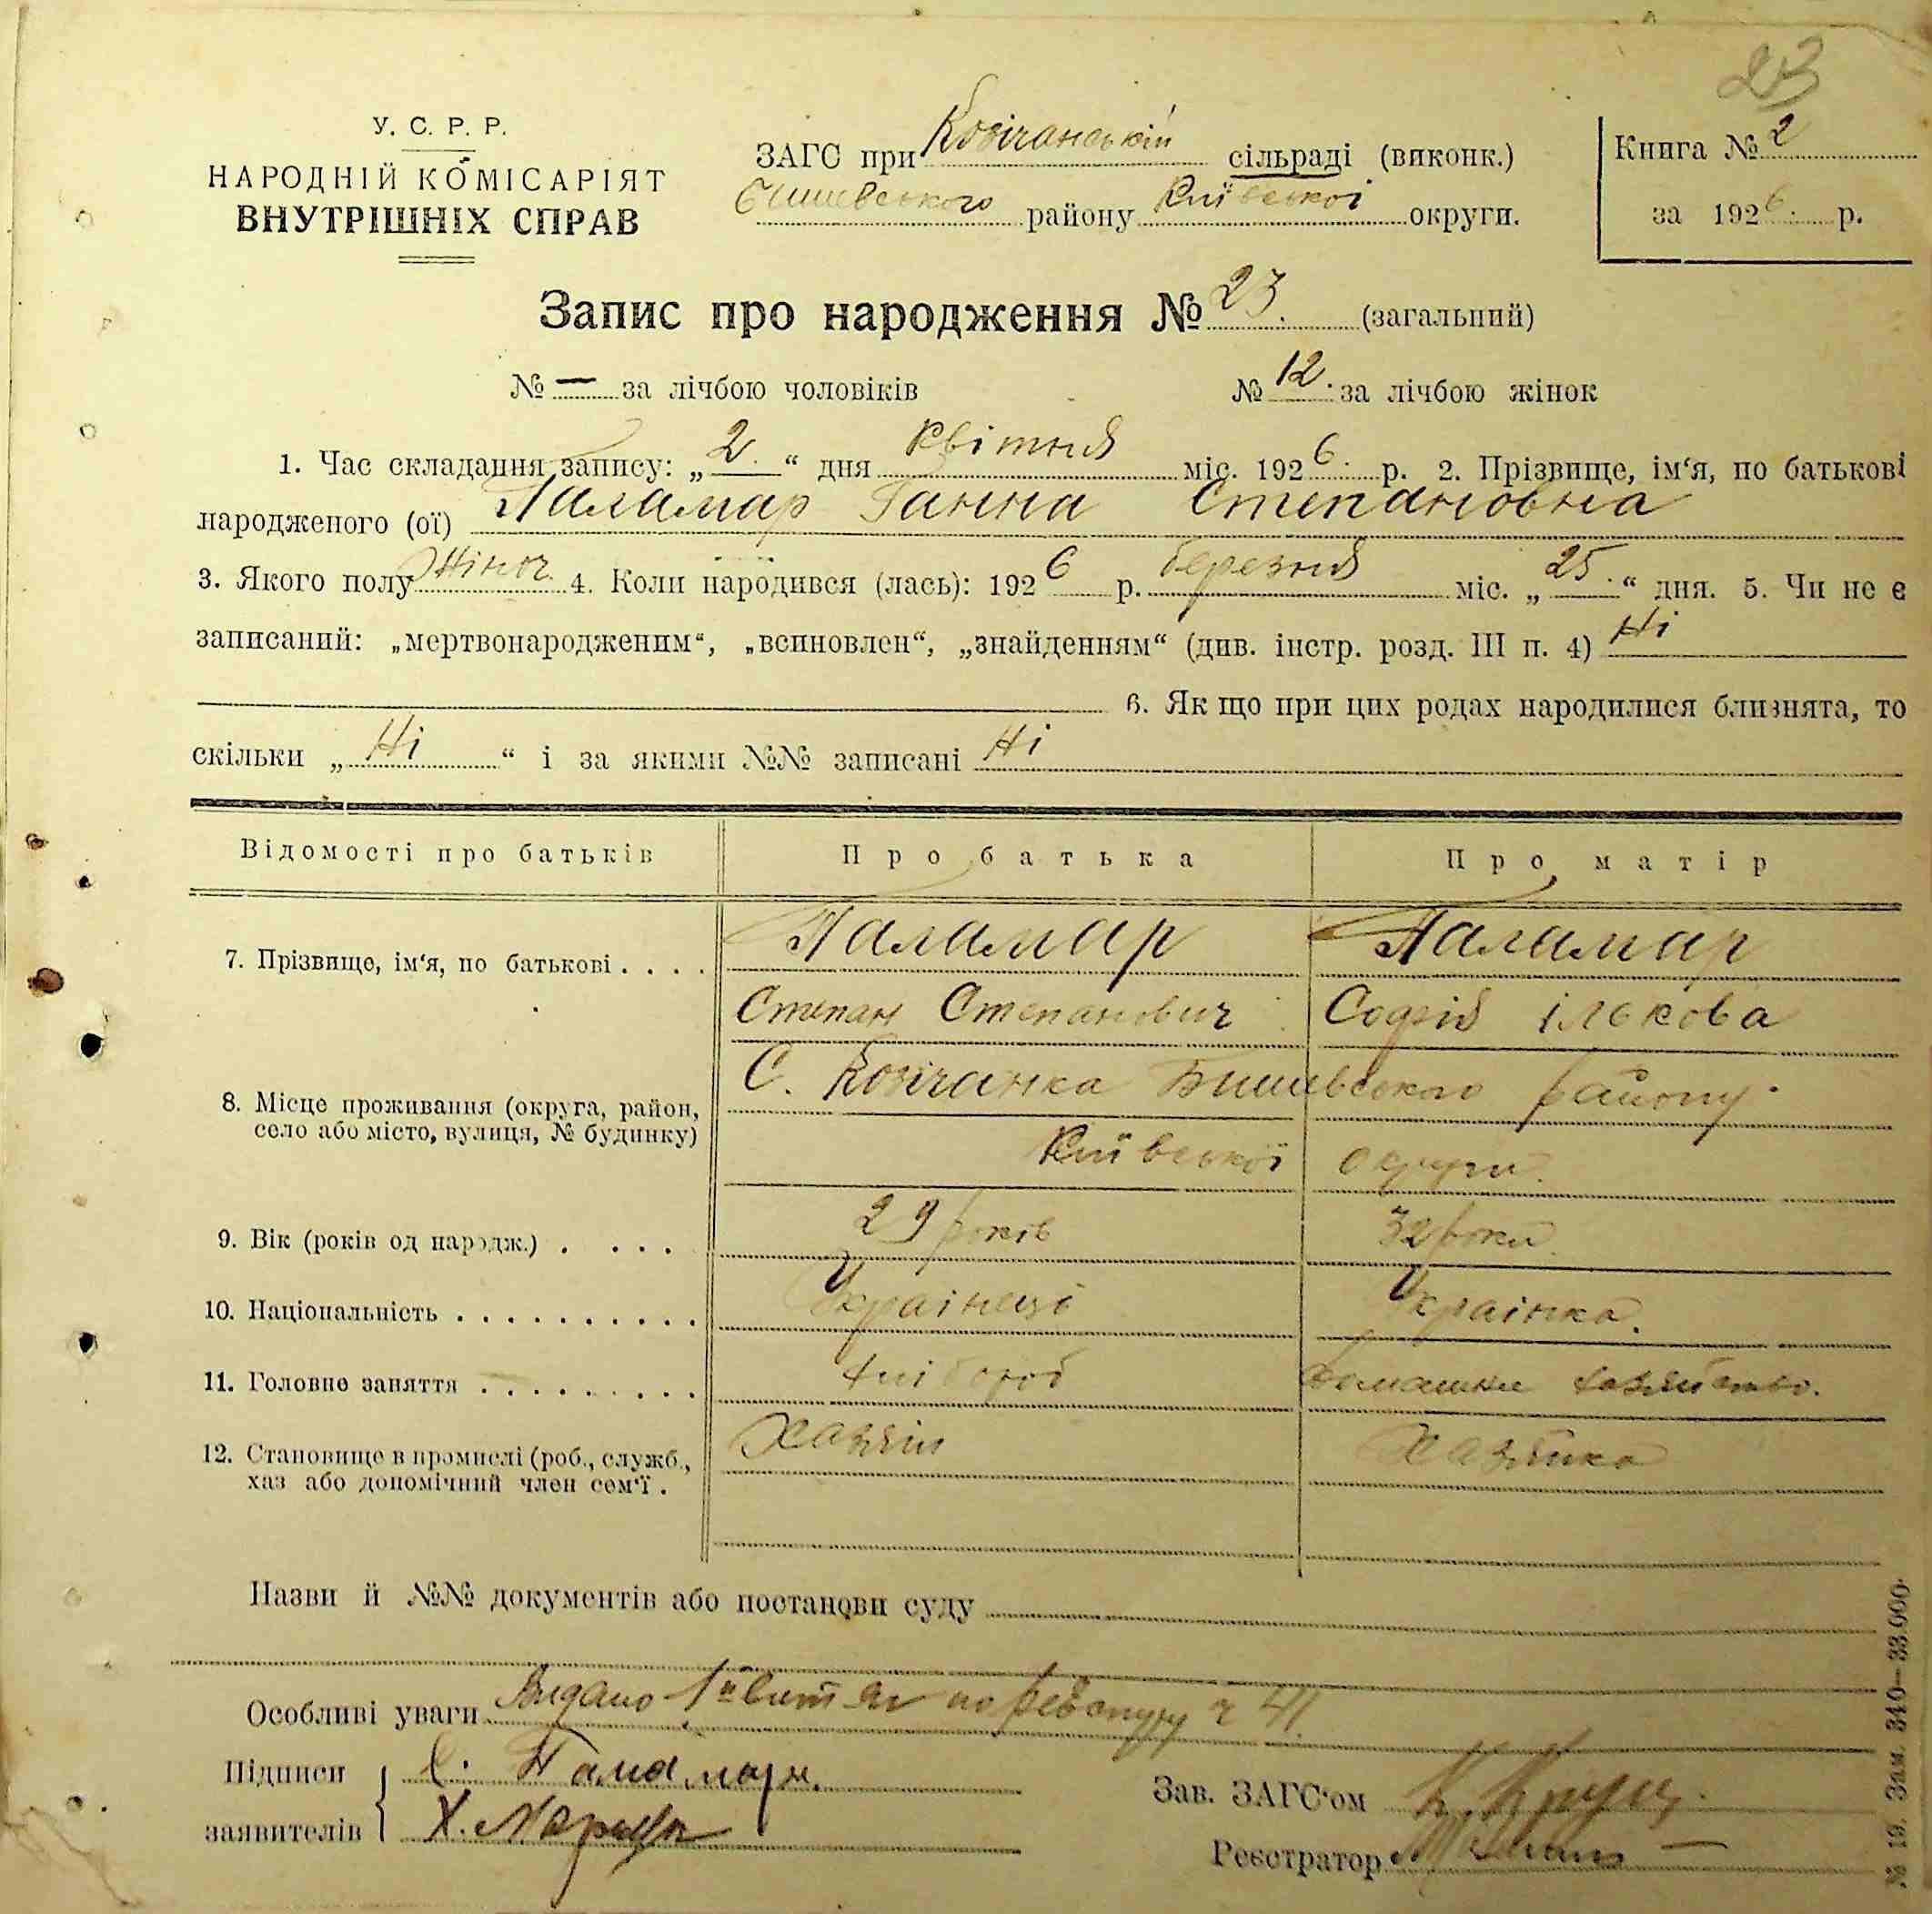 23
У. С. Р. Р.
НАРОДНІЙ КОМІСАРІЯТ
ВНУТРІШНІХ СПРАВ
ЗАГС при Козічанській сільраді (виконк.)
Бишевського району Київської округи.
Книга № 2
за 1926 р.
Запис про народження № 23. (загальний)
№ — за лічбою чоловіків № 12. за лічбою жінок
1. Час складання запису: „2.“ дня Квітня міс. 1926. р. 2. Прізвище, ім‘я, по батькові
народженого (ої) Паламар Ганна Степановна
3. Якого полу Жіноч. 4. Коли народився (лась): 1926 р. березня міс. „25.“ дня. 5. Чи не є
записаний: „мертвонародженим“, „всиновлен“, „знайденням“ (див. інстр. розд. III п. 4) Ні
6. Як що при цих родах народилися близнята, то
скільки „Ні“ і за якими №№ записані Ні
Відомості про батьків Про батька Про матір
7. Прізвище, ім‘я, по батькові . . . . Паламар Паламар
Степан Степанович Софія ількова
8. Місце проживання (округа, район, село або місто, вулиця, № будинку) С. Козічанка Бишевського району
Київської округи.
9. Вік (років од народж.) . . . . 29 років 32 роки.
10. Національність . . . . . . . . . . Українці Українка.
11. Головне заняття . . . . . . . . . Хлібороб Домашнє хазяйство.
12. Становище в промислі (роб., служб., Хазяїн Хазяйка
хаз або допомічний член сем‘ї .
Назви й №№ документів або постанови суду
Особливі уваги Видано по реєстру ч 41.
Підписи С. Паламарь.
заявителів Х.
Зав. ЗАГС‘ом
Реєстратор
№ 19. Зам. 340—33.000.